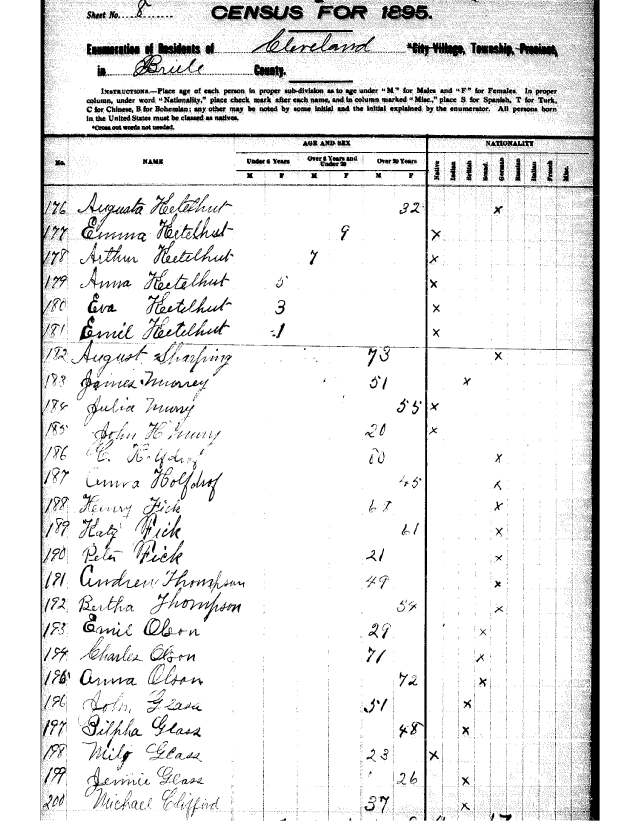 Sheet No. 8
CENSUS FOR 1895.
Enumeration of Residents of Cleveland *City Village, Township, Precinct,
in Brule County.
INSTRUCTIONS.—Place age of each person in proper sub-division as to age under "M" for Males and "F" for Females. In proper
column, under word "Nationality," place check mark after each name, and in column marked "Misc.," place S for Spanish, T for Turk,
C for Chinese, B for Bohemian; any other may be noted by some initial and the initial explained by the enumerator. All persons born
in the United States must be classed as natives.
*Cross out words not needed.
AGE AND SEX NATIONALITY
No. NAME Under 6 Years Over 6 Years and Under 20 Over 20 Years Native Indian British Scand. German Russian Italian French Misc.
M F M F M F
176 Augusta Hetelhut 32 x
177 Emma Hetelhut 9 x
178 Arthur Hetelhut 7 x
179 Anna Hetelhut 5 x
180 Eva Hetelhut 3 x
181 Emil Hetelhut 1 x
182 August Sharping 73 x
183 James Murrey 51 x
184 Julia Murry 55 x
185 John H Murry 20 x
186 C. x
187 Anna Holfdrof 45 x
188 Henry Fick x
189 Katy Fick 61 x
190 Peter Fick 21 x
191 Andrew Thompson 49 x
192 Bertha Thompson 54 x
193 Emil Olson 29 x
194 Charles Olson 71 x
195 Anna Olson 72 x
196 John Glass 51 x
197 Bilpha Glass 48 x
198 Milo Glass 23 x
199 Jennie Glass 26 x
200 Michael Clifford 37 x